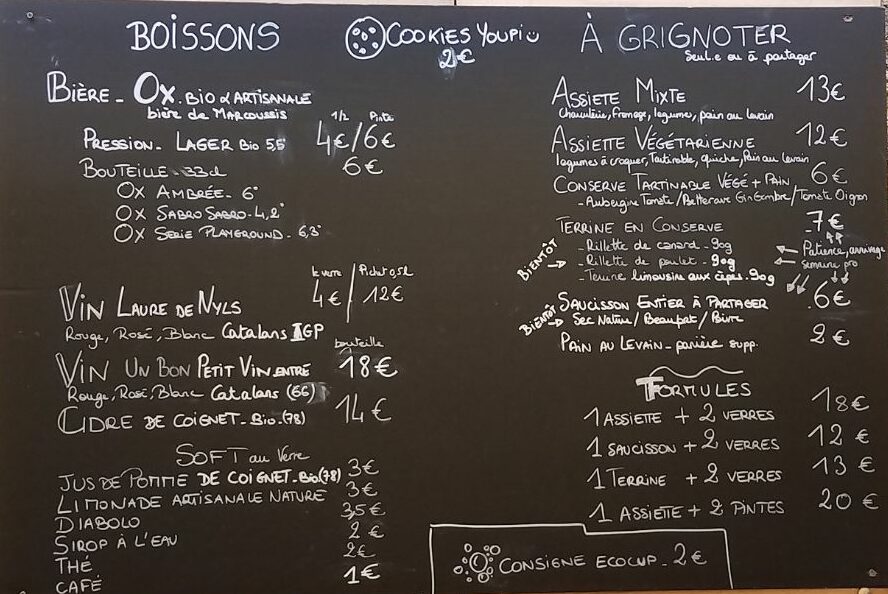 BOISSONS
COOKIES YOUPI
2€
À GRIGNOTER
Seul.e ou à partager
BIÈRE - OX. BIO & ARTISANALE
bière de MARCOUSSIS
1/2 Pinte
PRESSION - LAGER Bio 5,5° 4€/6€
BOUTEILLE - 33cl 6€
OX AMBRÉE - 6°
OX SABRO SABRO - 4,2°
OX SERIE PLAYGROUND - 6,3°
le verre / Pichet 0,5L
VIN LAURE DE NYLS 4€ / 12€
Rouge, Rosé, Blanc Catalans IGP
bouteille
VIN UN BON PETIT VIN ENTRE 18€
Rouge, Rosé, Blanc Catalans (66)
CIDRE DE COIGNET - Bio - (78) 14€
SOFT au Verre
JUS DE POMME DE COIGNET - Bio (78) 3€
LIMONADE ARTISANALE NATURE 3€
DIABOLO 3,5€
SIROP À L'EAU 2€
THÉ 2€
CAFÉ 1€
ASSIETE MIXTE 13€
Charcuterie, fromage, legumes, pain au levain
ASSIETTE VÉGÉTARIENNE 12€
legumes à croquer, Tartinable, quiche, Pain au levain
CONSERVE TARTINABLE VÉGÉ + PAIN 6€
- Aubergine Tomate / Betterave Gingembre / Tomate Oignon
TERRINE EN CONSERVE 7€
BIENTÔT
- Rillette de canard - 90g
- Rillette de poulet - 90g
- Terrine limousine aux cèpes - 90g
Patience, arrivage
semaine pro
SAUCISSON ENTIER À PARTAGER 6€
BIENTÔT
Sec Nature / Beaufort / Poivre
PAIN AU LEVAIN - panière supp. 2€
FORMULES
1 ASSIETTE + 2 VERRES 18€
1 SAUCISSON + 2 VERRES 12€
1 TERRINE + 2 VERRES 13€
1 ASSIETTE + 2 PINTES 20€
CONSIGNE ECOCUP - 2€